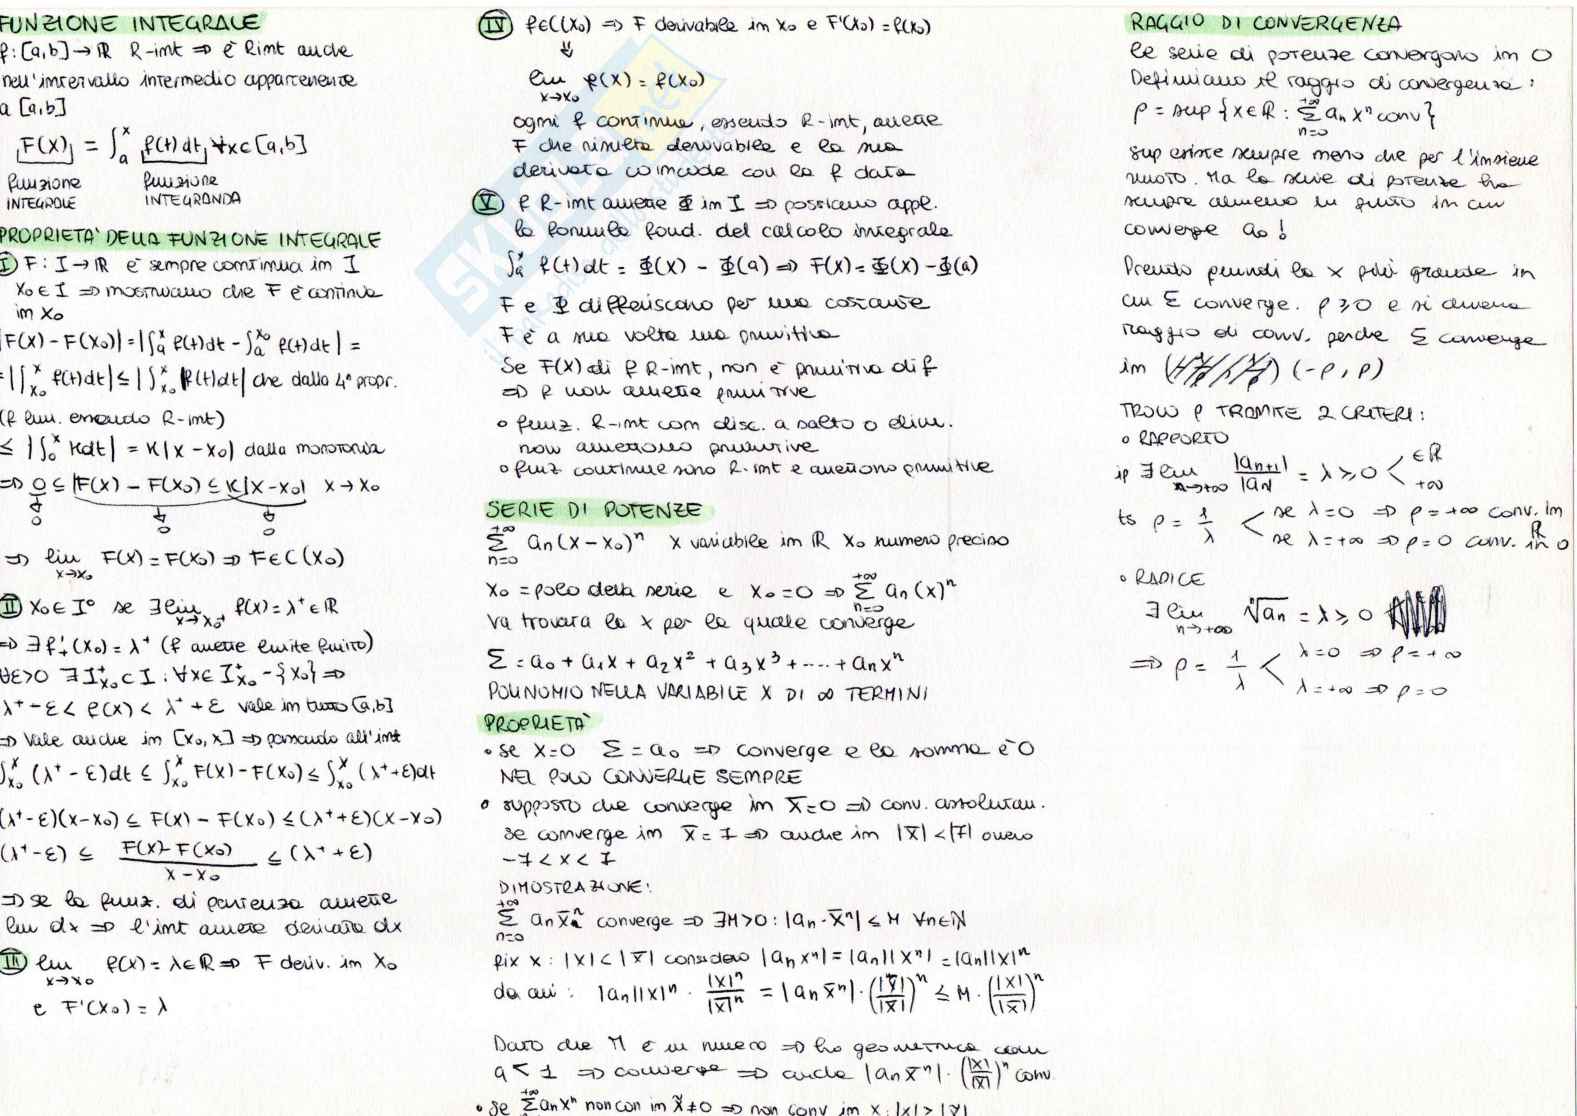 FUNZIONE INTEGRALE
f: [a,b] → ℝ R-int ⇒ è Rint anche
nell'intervallo intermedio appartenente
a [a,b]
F(x) = ∫_a^x f(t) dt, ∀x ∈ [a,b]
funzione funzione
INTEGRALE INTEGRANDA
PROPRIETA' DELLA FUNZIONE INTEGRALE
I F: I → ℝ è sempre continua in I
x₀ ∈ I ⇒ mostriamo che F è continua
in x₀
|F(x) - F(x₀)| = |∫_a^x f(t)dt - ∫_a^x₀ f(t)dt| =
= |∫_x₀^x f(t)dt| ≤ |∫_x₀^x f(t)dt| che dalla 4ª propr.
(f lim. essendo R-int)
≤ |∫_0^x Kdt| = K|x - x₀| dalla monotonia
⇒ 0 ≤ |F(x) - F(x₀) ≤ K|x - x₀| x → x₀
0 0 0
⇒ lim x→x₀ F(x) = F(x₀) ⇒ F ∈ C(x₀)
II x₀ ∈ I° se ∃ lim x→x₀⁺ f(x) = λ⁺ ∈ ℝ
⇒ ∃ f'₊(x₀) = λ⁺ (f ammette limite finito)
∀ε>0 ∃ I⁺x₀ ⊂ I : ∀x ∈ I⁺x₀ - {x₀} ⇒
λ⁺ - ε < f(x) < λ⁺ + ε vale in tutto [a,b]
⇒ Vale anche in [x₀, x] ⇒ passando all'int
∫_x₀^x (λ⁺ - ε)dt ≤ ∫_x₀^x F(x) - F(x₀) ≤ ∫_x₀^x (λ⁺ + ε)dt
(λ⁺ - ε)(x - x₀) ≤ F(x) - F(x₀) ≤ (λ⁺ + ε)(x - x₀)
(λ⁺ - ε) ≤ F(x) - F(x₀) / x - x₀ ≤ (λ⁺ + ε)
⇒ se la funz. di partenza ammette
lim dx ⇒ l'int ammette derivata dx
III lim x→x₀ f(x) = λ ∈ ℝ ⇒ F deriv. in x₀
e F'(x₀) = λ
IV f ∈ C(x₀) ⇒ F derivabile in x₀ e F'(x₀) = f(x₀)
⇓
lim x→x₀ f(x) = f(x₀)
ogni f continua, essendo R-int, ammette
F che risulta derivabile e la sua
derivata coincide con la f data
V f R-int ammette Φ in I ⇒ possiamo appl.
la formula fond. del calcolo integrale
∫_a^x f(t) dt = Φ(x) - Φ(a) ⇒ F(x) = Φ(x) - Φ(a)
F e Φ differiscono per una costante
F è a sua volta una primitiva
Se F(x) di f R-int, non è primitiva di f
⇒ f non ammette primitive
o funz. R-int con disc. a salto o elim.
non ammettono primitive
o funz continue sono R-int e ammettono primitive
SERIE DI POTENZE
Σ_{n=0}^{+∞} aₙ(x - x₀)ⁿ x variabile in ℝ x₀ numero preciso
x₀ = polo della serie e x₀ = 0 ⇒ Σ_{n=0}^{+∞} aₙ(x)ⁿ
Va trovata la x per la quale converge
Σ = a₀ + a₁x + a₂x² + a₃x³ + ---- + aₙxⁿ
POLINOMIO NELLA VARIABILE X DI ∞ TERMINI
PROPRIETA'
• se x=0 Σ = a₀ ⇒ converge e la somma è 0
NEL POLO CONVERGE SEMPRE
• supposto che converge in x̄=0 ⇒ conv. assolutam.
se converge in x̄ = 7 ⇒ anche in |x̄| < |7| ovvero
-7 < x < 7
DIMOSTRAZIONE:
Σ_{n=0}^{+∞} aₙx̄ⁿ converge ⇒ ∃M>0 : |aₙ · x̄ⁿ| ≤ M ∀n∈ℕ
fix x : |x| < |x̄| considero |aₙxⁿ| = |aₙ||xⁿ| = |aₙ||x|ⁿ
da cui : |aₙ||x|ⁿ · |x|ⁿ/|x̄|ⁿ = |aₙx̄ⁿ| · (|x̄|/|x̄|)ⁿ ≤ M · (|x|/|x̄|)ⁿ
Dato che M è un numero ⇒ ho geometrica con
q < 1 ⇒ converge ⇒ anche |aₙx̄ⁿ| · (|x|/|x̄|)ⁿ conv
• Se Σ^{+∞} aₙxⁿ non con in x̄≠0 ⇒ non conv in x : |x| > |x̄|
RAGGIO DI CONVERGENZA
le serie di potenze convergono in 0
Definiamo il raggio di convergenza :
ρ = sup {x ∈ ℝ : Σ_{n=0}^{+∞} aₙxⁿ conv}
sup esiste sempre meno che per l'insieme
vuoto. Ma la serie di potenze ha
sempre almeno un punto in cui
converge a₀ !
Prendo quindi la x più grande in
cui Σ converge. ρ ≥ 0 e si chiama
raggio di conv. perché Σ converge
in (-ρ, ρ)
TROVO ρ TRAMITE 2 CRITERI :
o RAPPORTO
ip ∃ lim n→+∞ |aₙ₊₁|/|aₙ| = λ ≥ 0 < ∈ℝ
+∞
ts ρ = 1/λ < se λ=0 ⇒ ρ = +∞ conv. in ℝ
se λ=+∞ ⇒ ρ=0 conv. in 0
o RADICE
∃ lim n→+∞ ⁿ√aₙ = λ ≥ 0
⇒ ρ = 1/λ < λ=0 ⇒ ρ=+∞
λ=+∞ ⇒ ρ=0